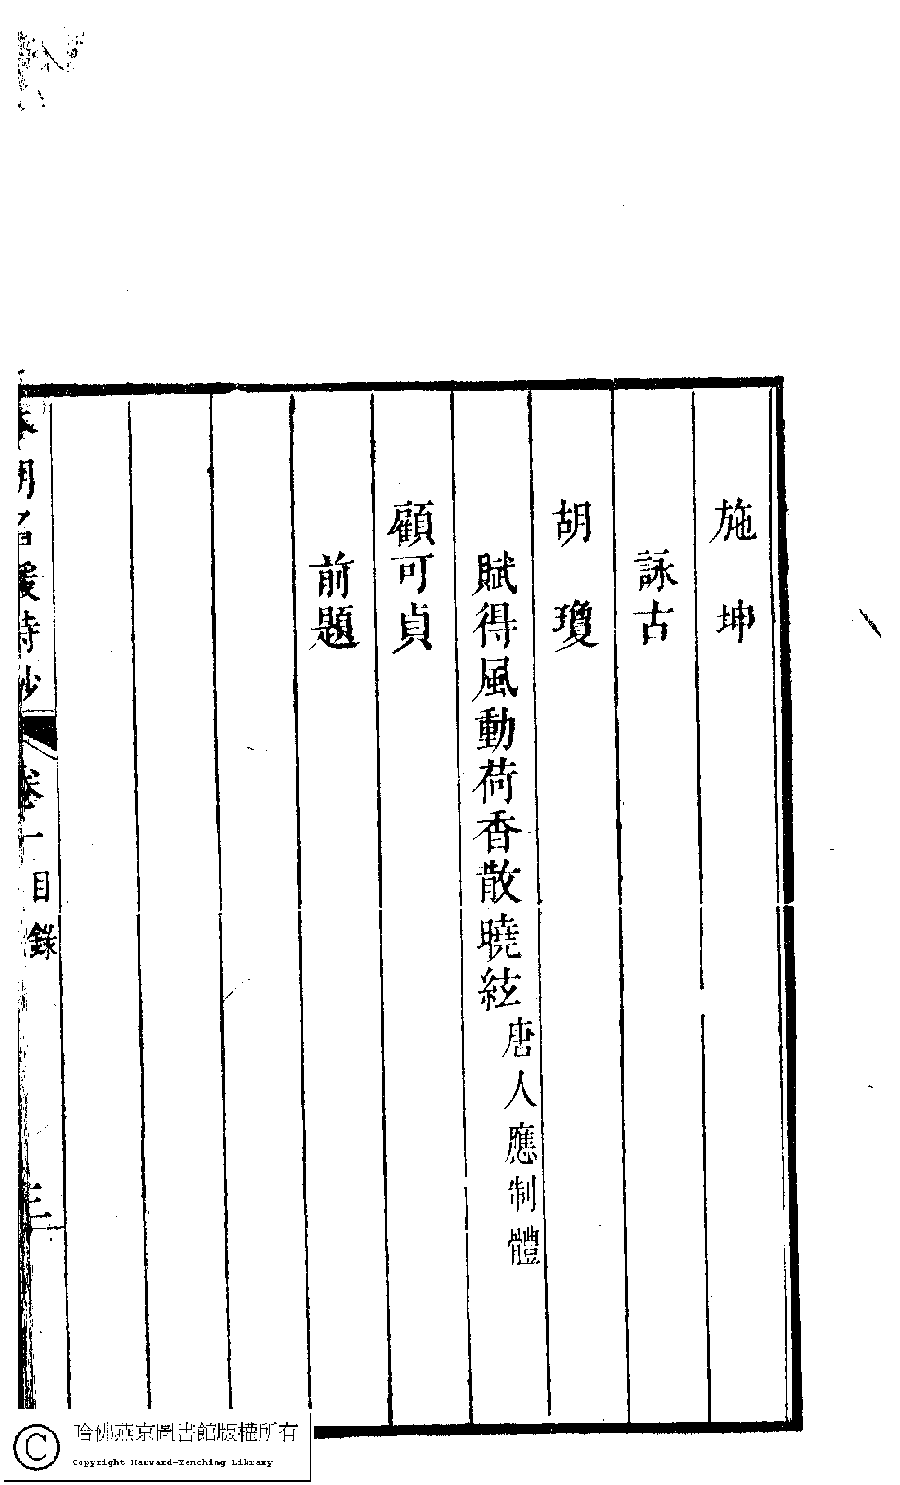 施坤
詠古
胡瓊
賦得風動荷香散曉絃唐人應制體
顧可貞
前題
本朝名媛詩鈔 卷一目錄 三
哈佛燕京圖書館版權所有
Copyright Harvard-Yenching Library